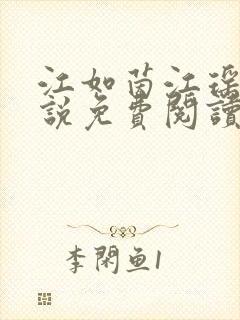 江如茵江瑶
說免費閱讀
李閑鱼1